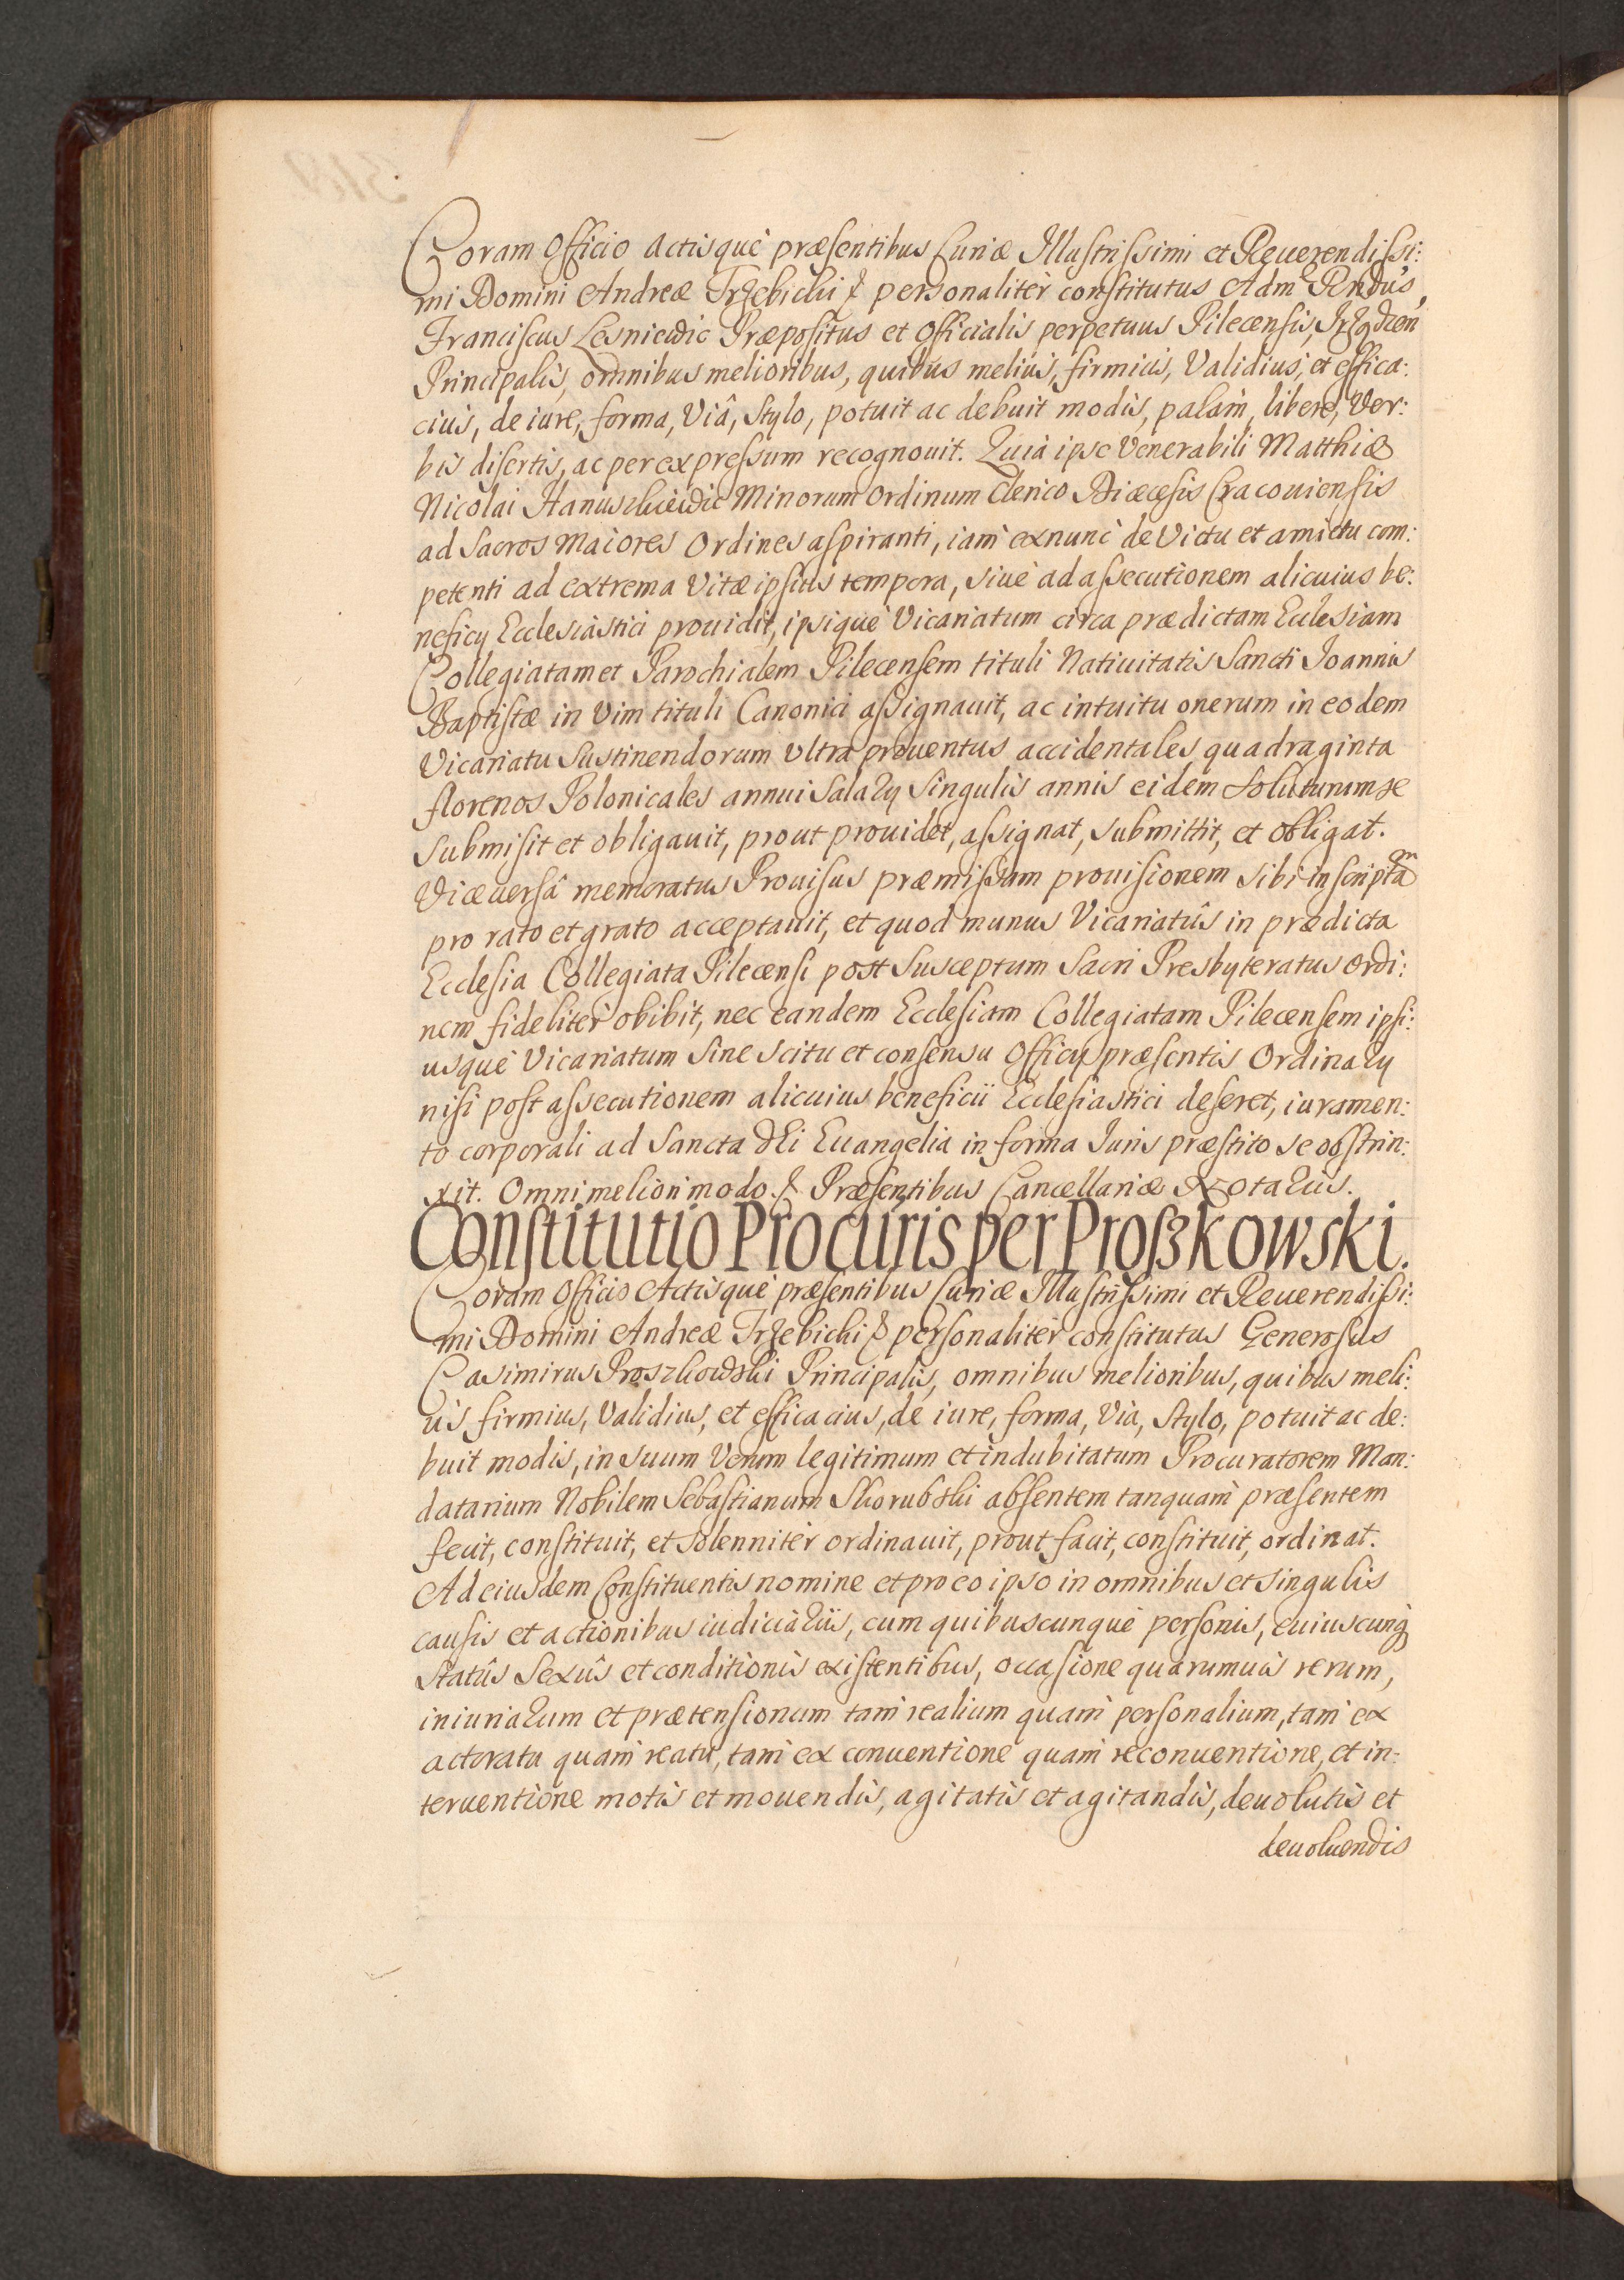 Coram Officio Actisquè præsentibus Curiæ Illustrissimi et Reuerendissi:
mi Domini Andreæ Trzebicki & personalitèr constitutus Adm Rndus,
Franciscus Lesniewic Præpositus et Officialis perpetuus Pilecensis,
Principalis, omnibus melioribus, quibus meliùs, firmiùs, Validiùs, et effica:
ciùs, de iure, forma, Viâ, Stylo, potuit ac debuit modis, palàm, liberè, Ver:
bis disertis, ac per expressum recognouit. Quià ipse Venerabili Matthiæ
Nicolai Hanuszkiewic Minorum Ordinum Clerico Diæcesis Cracouiensis
ad Sacros Maiores Ordines aspiranti, iàm exnunc de Victu et amictu com:
petenti ad extrema Vitæ ipsius tempora, siuè ad assecutionem alicuius be:
neficÿ Ecclesiastici prouidit, ipsiquè Vicariatum circa prædictam Ecclesiam
Collegiatam et Parochialem Pilecensem tituli Natiuitatis Sancti Joannis
Baptistæ in Vim tituli Canonici assignauit, ac intuitu onerum in eodem
Vicariatu Sustinendorum Vltra prouentus accidentales quadraginta
florenos Polonicales annui Salarÿ Singulis annis eidem Soluturum se
Submisit et obligauit, prout prouidet, assignat, submittit, et obligat.
Viceuersâ memoratus Prouisus præmissam prouisionem sibi inscriptãm
pro rato et grato acceptauit, et quod munus Vicariatûs in prædicta
Ecclesia Collegiata Pilecensi post Susceptum Sacri Presbyteratus Ordi:
nem fidelitèr obibit, nec eandem Ecclesiam Collegiatam Pilecensem ipsi:
usquè Vicariatum Sine scitu et consensu Officÿ præsentis Ordinarÿ
nisi post assecutionem alicuius beneficii Ecclesiastici deseret, iuramen:
to corporali ad Sancta DEi Euangelia in forma Juris præstito se obstrin:
xit. Omni meliori modo & Præsentibus Cancellariæ Notariis.
Constitutio Procuris per Proszkowski.
Coram Officio Actisquè præsentibus Curiæ Illustrissimi et Reuerendissi:
mi Domini Andreæ Trzebicki & personalitèr constitutus Generosus
Casimirus Proszkowski Principalis, omnibus melioribus, quibus meli:
ùs firmius, Validius, et efficacius, de iure, forma, Via, Stylo, potuit ac de:
buit modis, in suum Verum legitimum et indubitatum Procuratorem Man:
datarium Nobilem Sebastianum Skorubski absentem tanquàm præsentem
fecit, constituit, et solennitèr ordinauit, prout facit, constituit, ordinat.
Ad eiusdem Constituentis nomine et pro eo ipso in omnibus et singulis
causis et actionibus iudiciariis, cum quibuscunquè personis, cuiuscunq
Statûs Sexûs et conditionis existentibus, occasione quarumuis rerum,
iniuriarum et prætensionum tàm realium quàm personalium, tàm ex
actoratu quàm reatu, tàm ex conuentione quàm reconuentione, et in:
teruentione motis et mouendis, agitatis et agitandis, deuolutis et
deuoluendis